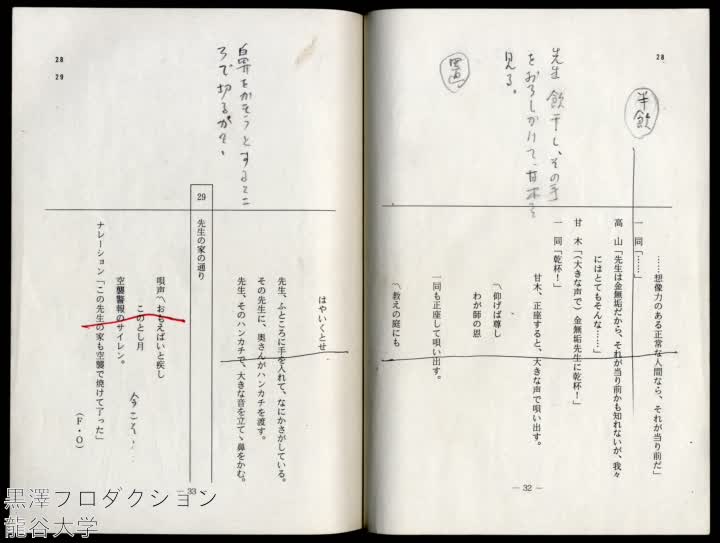 28
半飲
……想像力のある正常な人間なら、それが当り前だ」
一　同「……」
高　山「先生は金無垢だから、それが当り前かも知れないが、我々
にはとてもそんな……」
甘　木「(大きな声で)金無垢先生に乾杯！」
一　同「乾杯！」
甘木、正座すると、大きな声で唄い出す。
〽仰げば尊し
わが師の恩
一同も正座して唄い出す。
〽教えの庭にも
先生 飲干し、その手
をおろしかけて、甘木を
見る。
― 32 ―
28
29
はやいくとせ
先生、ふところに手を入れて、なにかさがしている。
その先生に、奥さんがハンカチを渡す。
先生、そのハンカチで、大きな音を立てゝ鼻をかむ。
鼻をかもうとするとこ
ろで切るがよい
29　先生の家の通り
唄声〽おもえばいと疾し
このとし月
空襲警報のサイレン。
ナレーション「この先生の家も空襲で焼けて了った」
(F・O)
― 33 ―
黒澤プロダクション
龍谷大学